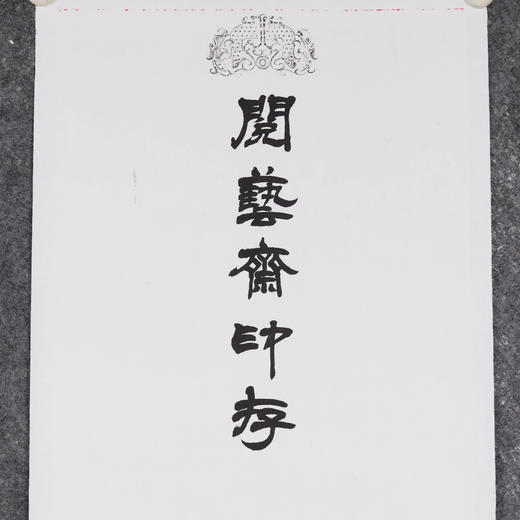 閱藝齋印存